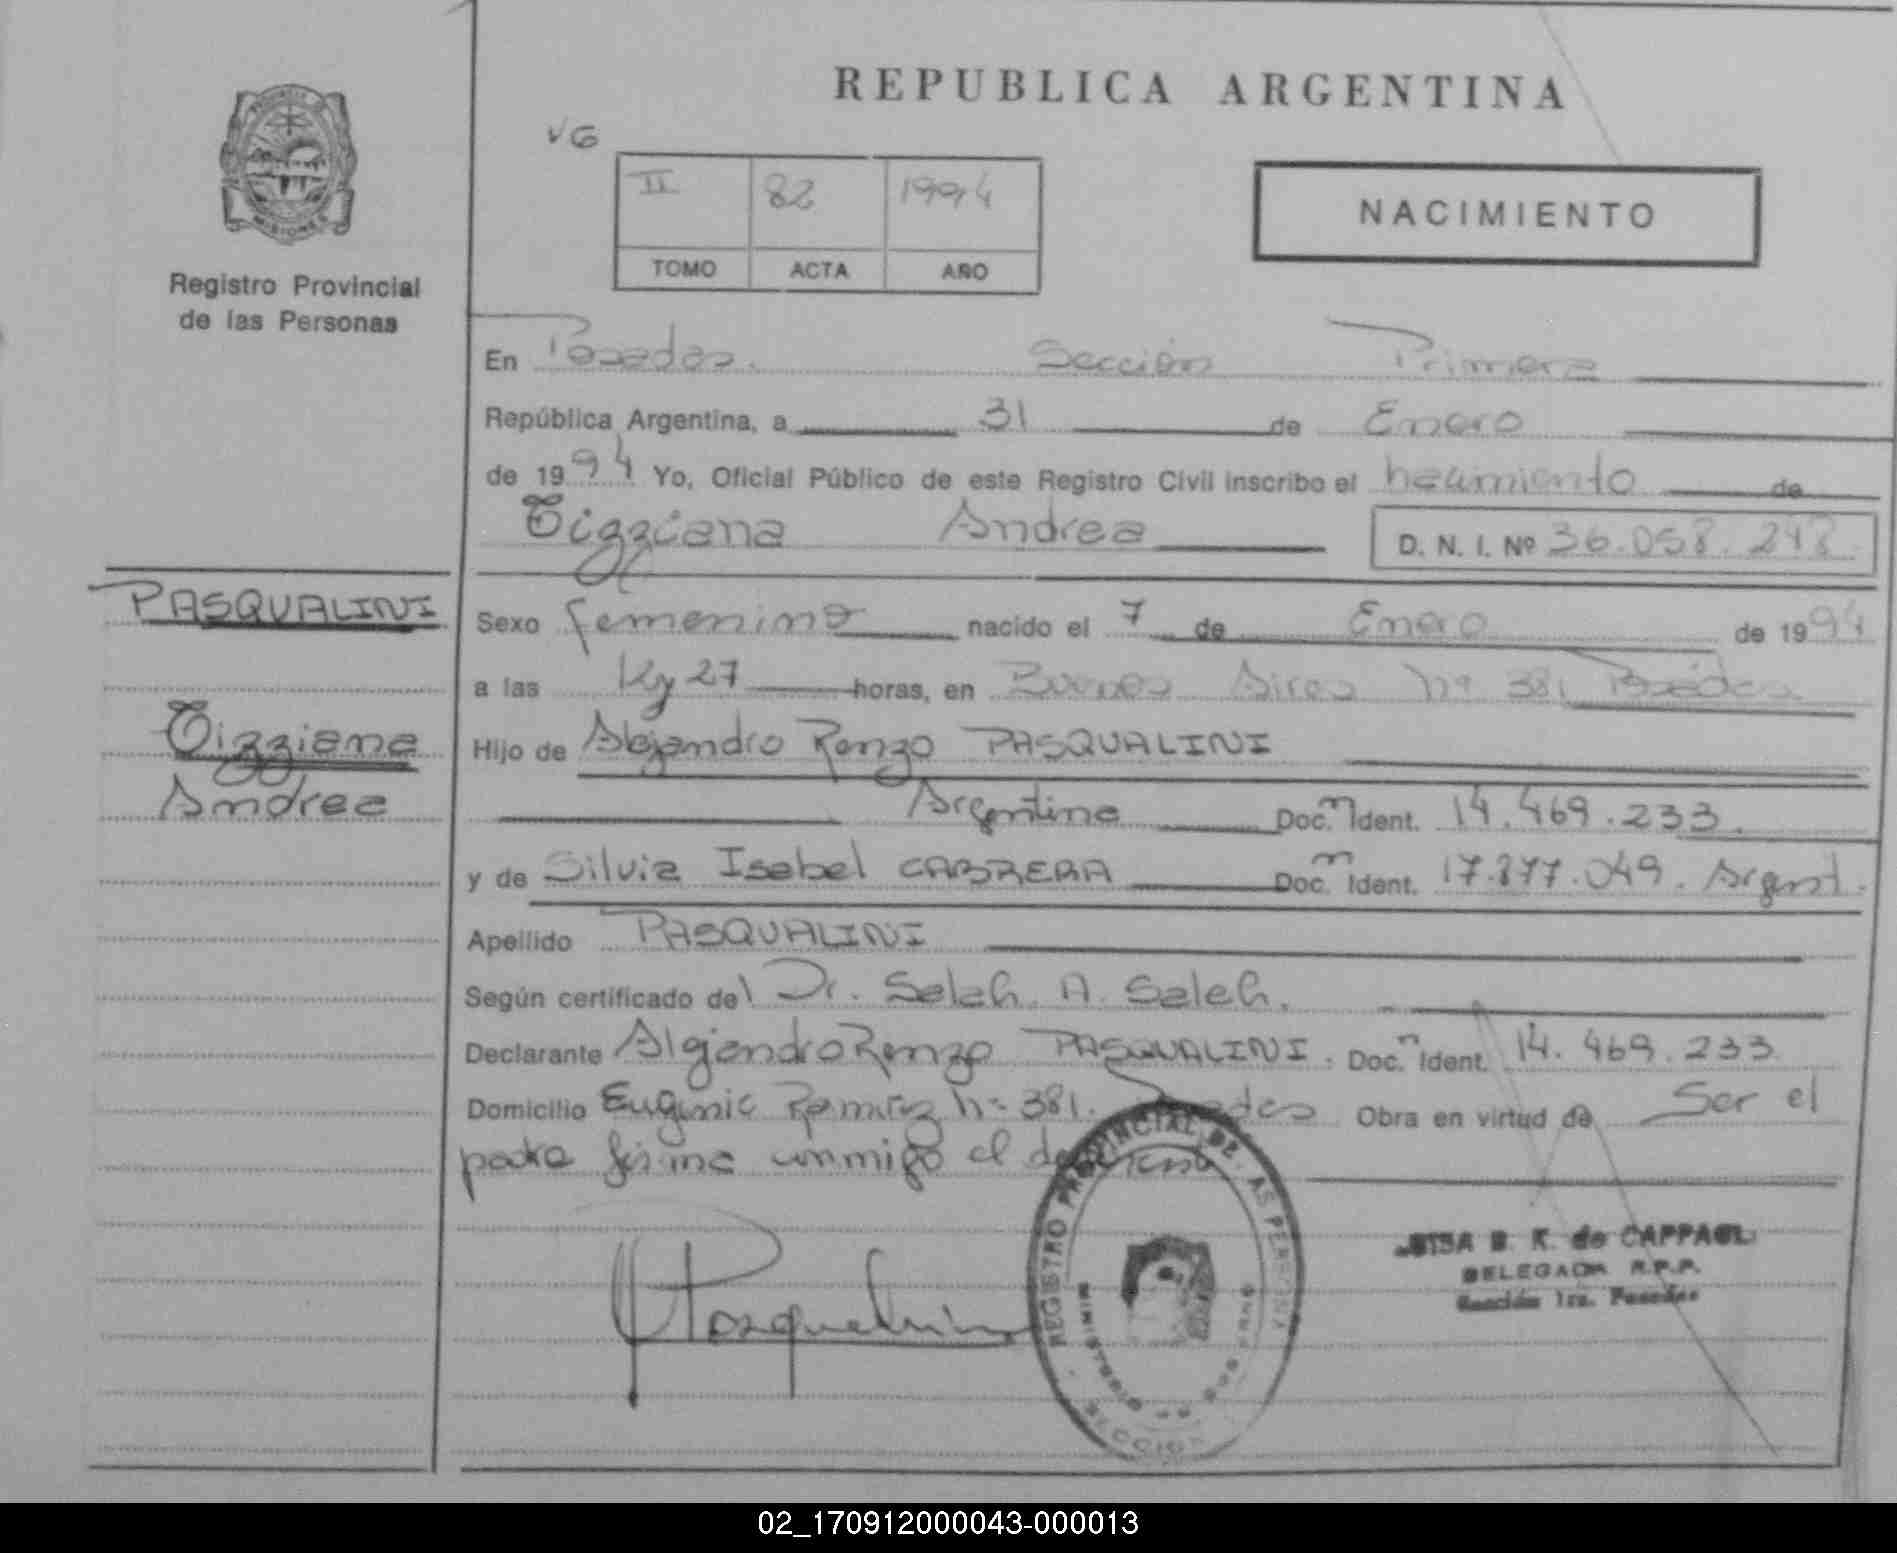 REPUBLICA ARGENTINA
VG
II 82 1994
TOMO ACTA AÑO
NACIMIENTO
MISIONES
Registro Provincial
de las Personas
En Posadas. Sección Primera
República Argentina, a 31 de Enero
de 1994 Yo, Oficial Público de este Registro Civil inscribo el nacimiento de
Tizziana Andrea D. N. I. Nº 36.058.248
PASQUALINI
Tizziana
Andrea
Sexo femenino nacido el 7 de Enero de 1994
a las 12 y 27 horas, en Buenos Aires nº 381 Posadas
Hijo de Alejandro Renzo PASQUALINI
Argentino Doc.n Ident. 14.469.233.
y de Silvia Isabel CABRERA Doc.n Ident. 17.877.049. Argent.
Apellido PASQUALINI
Según certificado del Dr. Saleh A. Saleh.
Declarante Alejandro Renzo PASQUALINI. Doc.n Ident. 14.469.233
Domicilio Eugenio Ramirez nº 381. Posadas Obra en virtud de Ser el
padre firma conmigo el
REGISTRO PROVINCIAL DE LAS PERSONAS
MINISTERIO DE GOBIERNO
SECCION
Pasqualini
B. K. de CAPPAGLI
DELEGADA R.P.P.
Sección 1ra. Posadas
02_170912000043-000013